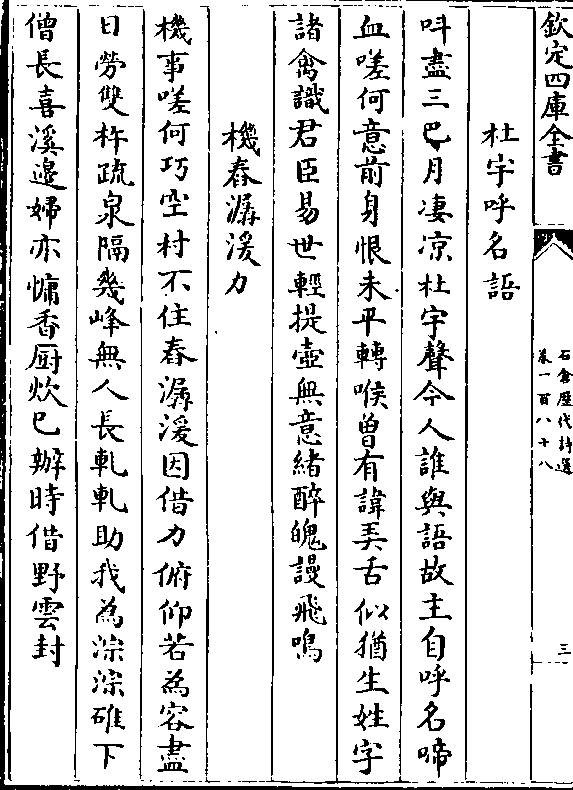 欽定四庫全書
石倉歴代詩選
卷一百八十八
三
杜宇呼名語
呌盡三巴月凄凉杜宇聲今人誰與語故主自呼名啼
血嗟何意前身恨未平轉喉曾有諱弄舌似猶生姓字
諸禽識君臣易世輕提壺無意緒醉魄謾飛鳴
機舂潺湲力
機事嗟何巧空村不住舂潺湲因借力俯仰若為容盡
日勞雙杵疏泉隔幾峰無人長軋軋助我為淙淙碓下
僧長喜溪邉婦亦慵香厨炊已辦時借野雲封